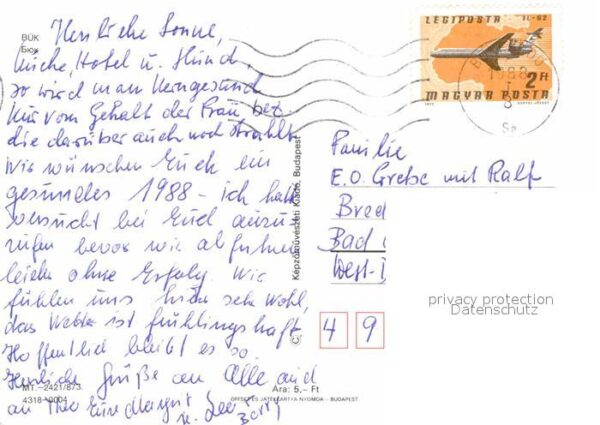 BÜK
Бюк
Herrliche Sonne,
Küche, Hotel u. Hund,
so wird man kerngesund
Kur vom Gehalt der Frau, bez.
die darüber auch noch strahlt.
Wir wünschen Euch ein
gesundes 1988 – ich hatte
versucht bei Euch anzu-
rufen bevor wir abfuhren
leider ohne Erfolg. Wir
fühlen uns hier sehr wohl,
das Wetter ist frühlingshaft.
Hoffentlich bleibt es so.
Herzliche Grüße an Alle und
an Eure Margret u.
MT.–2421/873.
4318-0004
Képzőművészeti Kiadó, Budapest
Ára: 5,– Ft
OFFSET ÉS JÁTÉKKÁRTYA NYOMDA – BUDAPEST
LÉGIPOSTA IL-62
2 Ft
MAGYAR POSTA
1988
Familie
E.O. Grebe mit Ralf
Bred
Bad
West-
4 9
privacy protection
Datenschutz